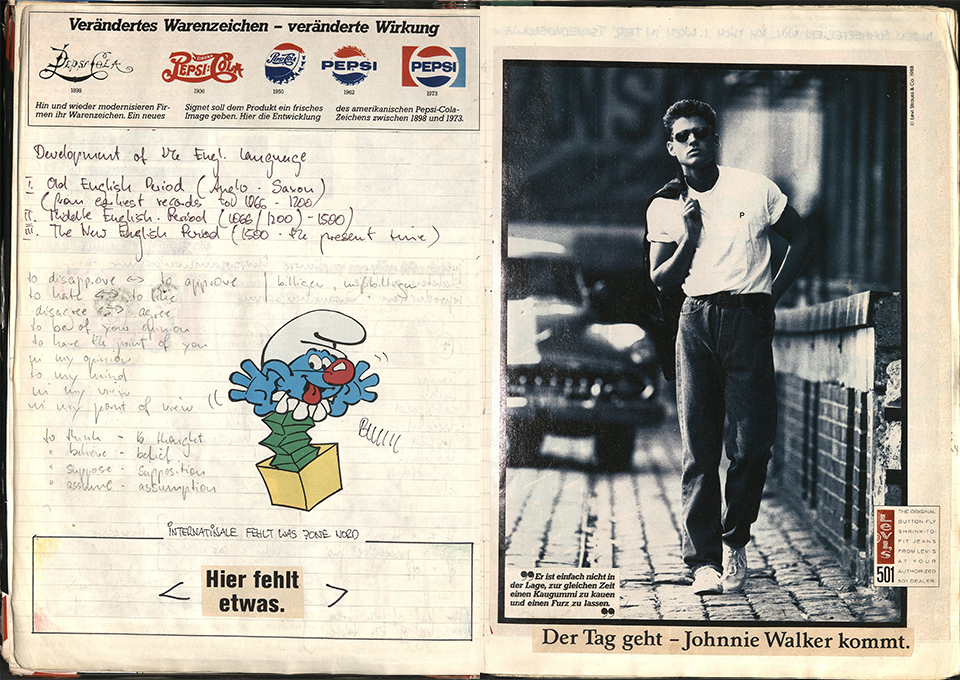 Verändertes Warenzeichen – veränderte Wirkung
Pepsi-Cola
PEPSI-COLA
Pepsi-Cola
PEPSI
PEPSI
1898
1906
1950
1962
1973
Hin und wieder modernisieren Fir-
men ihr Warenzeichen. Ein neues
Signet soll dem Produkt ein frisches
Image geben. Hier die Entwicklung
des amerikanischen Pepsi-Cola-
Zeichens zwischen 1898 und 1973.
Development of the Engl. Language
I. Old English Period (Anglo-Saxon)
(from earliest records to 1066 - 1200)
II. Middle English Period (1066/1200) - 1500)
III. The New English Period (1500 - the present time)
to disapprove <-> to approve | billigen, mißbilligen
to hate <-> to like
disagree <-> agree
to be of your opinion
to have the point of you
in my opinion
to my mind
in my view
in my point of view
to think - to thought
" believe - belief
" suppose - supposition
" assume - assumption
INTERNATINALE FEHLT WAS ZONE NORD
< Hier fehlt
etwas. >
P
© Levi Strauss & Co. 1988
Er ist einfach nicht in
der Lage, zur gleichen Zeit
einen Kaugummi zu kauen
und einen Furz zu lassen.
Levi's
501
THE ORIGINAL
BUTTON-FLY
SHRINK-TO-
FIT JEANS
FROM LEVI'S
AT YOUR
AUTHORIZED
501 DEALER.
Der Tag geht – Johnnie Walker kommt.